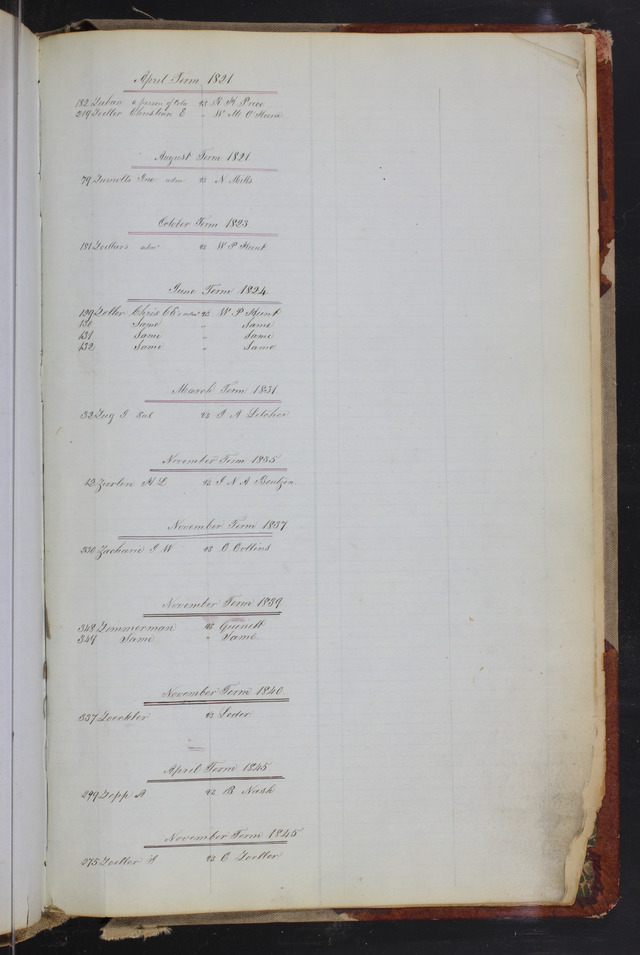 April Term 1821
182 Zuban a person of Color vs N H Price
219 Zoeller Christian E " W M O'Hara
August Term 1821
79 Zumolts Jno. admr vs N Mills
October Term 1823
181 Zoellars admr vs W P Hunt
June Term 1824
129 Zoller Chris Ch's admr vs W P Hunt
130 Same " Same
131 Same " Same
132 Same " Same
March Term 1831
32 Zug J vs I A Letcher
November Term 1835
12 H L vs I N A
November Term 1837
330 Zacharie J W vs C Collins
November Term 1839
348 Zimmerman vs
349 Same " Same
November Term 1840
337 vs Leder
April Term 1845
299 Zepp A vs B Nash
November Term 1845
275 Zoeller vs C Zoeller